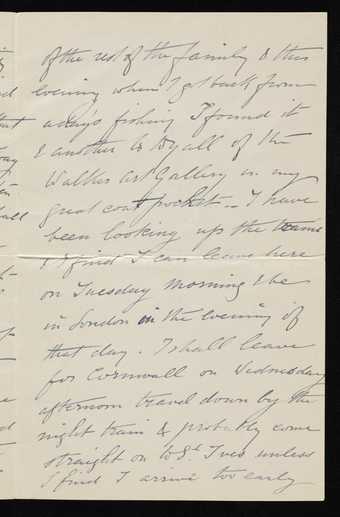 of the rest of the family & this
evening when I got back from
a day's fishing I found it
& another to Dyall of the
Walker Art Gallery in my
great coat pocket - I have
been looking up the trains
& I find I can leave here
on Tuesday morning & be
in London in the evening of
that day. I shall leave
for Cornwall on Wednesday
afternoon travel down by the
night train & probably come
straight on to St Ives unless
I find I arrive too early